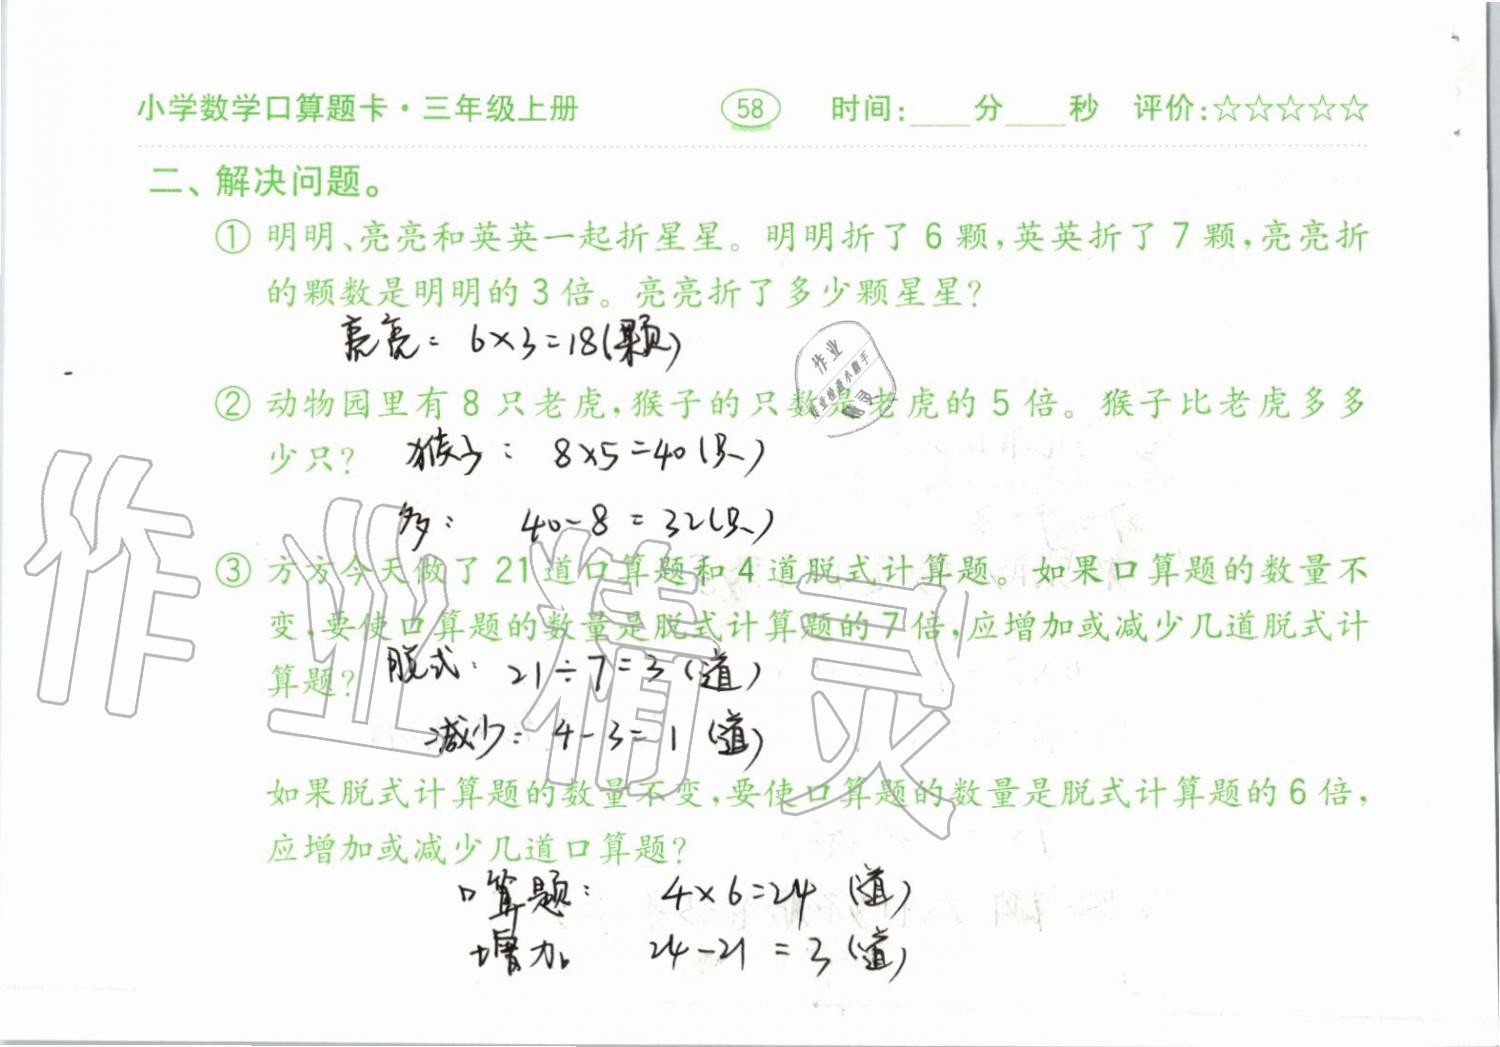 小学数学口算题卡·三年级上册 58 时间:____分____秒 评价:☆☆☆☆☆
二、解决问题。
① 明明、亮亮和英英一起折星星。明明折了6颗,英英折了7颗,亮亮折
的颗数是明明的3倍。亮亮折了多少颗星星?
亮亮: 6×3=18(颗)
② 动物园里有8只老虎,猴子的只数是老虎的5倍。猴子比老虎多多
少只?
猴子: 8×5=40(只)
多: 40-8=32(只)
③ 方方今天做了21道口算题和4道脱式计算题。如果口算题的数量不
变,要使口算题的数量是脱式计算题的7倍,应增加或减少几道脱式计
算题?
脱式: 21÷7=3(道)
减少: 4-3=1(道)
如果脱式计算题的数量不变,要使口算题的数量是脱式计算题的6倍,
应增加或减少几道口算题?
口算题: 4×6=24(道)
增加 24-21=3(道)
作业精灵
作业
作业检查小助手
精灵